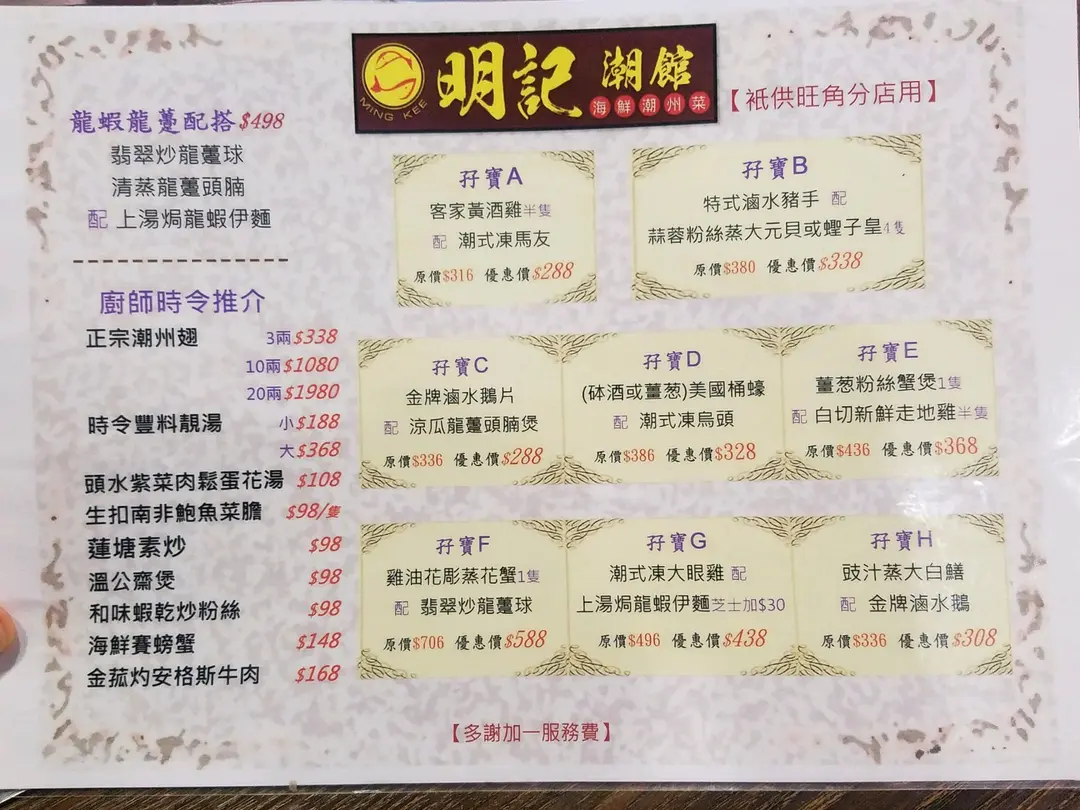 明記 潮館
MING KEE
海鮮潮州菜
【衹供旺角分店用】
龍蝦龍躉配搭$498
翡翠炒龍躉球
清蒸龍躉頭腩
配 上湯焗龍蝦伊麵
廚師時令推介
正宗潮州翅 3兩$338
10兩$1080
20兩$1980
時令豐料靚湯 小$188
大$368
頭水紫菜肉鬆蛋花湯 $108
生扣南非鮑魚菜膽 $98/隻
蓮塘素炒 $98
溫公齋煲 $98
和味蝦乾炒粉絲 $98
海鮮賽螃蟹 $148
金菰灼安格斯牛肉 $168
孖寶A
客家黃酒雞半隻
配 潮式凍馬友
原價$316 優惠價$288
孖寶B
特式滷水豬手 配
蒜蓉粉絲蒸大元貝或蟶子皇4隻
原價$380 優惠價$338
孖寶C
金牌滷水鵝片
配 涼瓜龍躉頭腩煲
原價$336 優惠價$288
孖寶D
(砵酒或薑葱)美國桶蠔
配 潮式凍烏頭
原價$386 優惠價$328
孖寶E
薑葱粉絲蟹煲1隻
配 白切新鮮走地雞半隻
原價$436 優惠價$368
孖寶F
雞油花彫蒸花蟹1隻
配 翡翠炒龍躉球
原價$706 優惠價$588
孖寶G
潮式凍大眼雞 配
上湯焗龍蝦伊麵芝士加$30
原價$496 優惠價$438
孖寶H
豉汁蒸大白鱔
配 金牌滷水鵝
原價$336 優惠價$308
【多謝加一服務費】